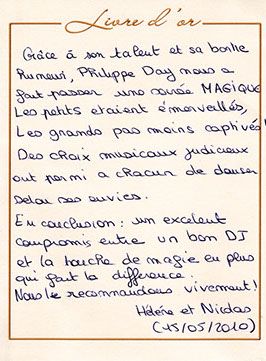 Livre d'or
Grâce à son talent et sa bonne
humeur, Philippe Day nous a
fait passer une soirée MAGIQUE
Les petits étaient émerveillés,
Les grands pas moins captivés!
Des choix musicaux judicieux
ont permi a chacun de danser
selon ses envies.
En conclusion : un excelent
compromis entre un bon DJ
et la touche de magie en plus
qui fait la différence.
Nous le recommandons vivement!
Hélène et Nicolas
(15/05/2010)